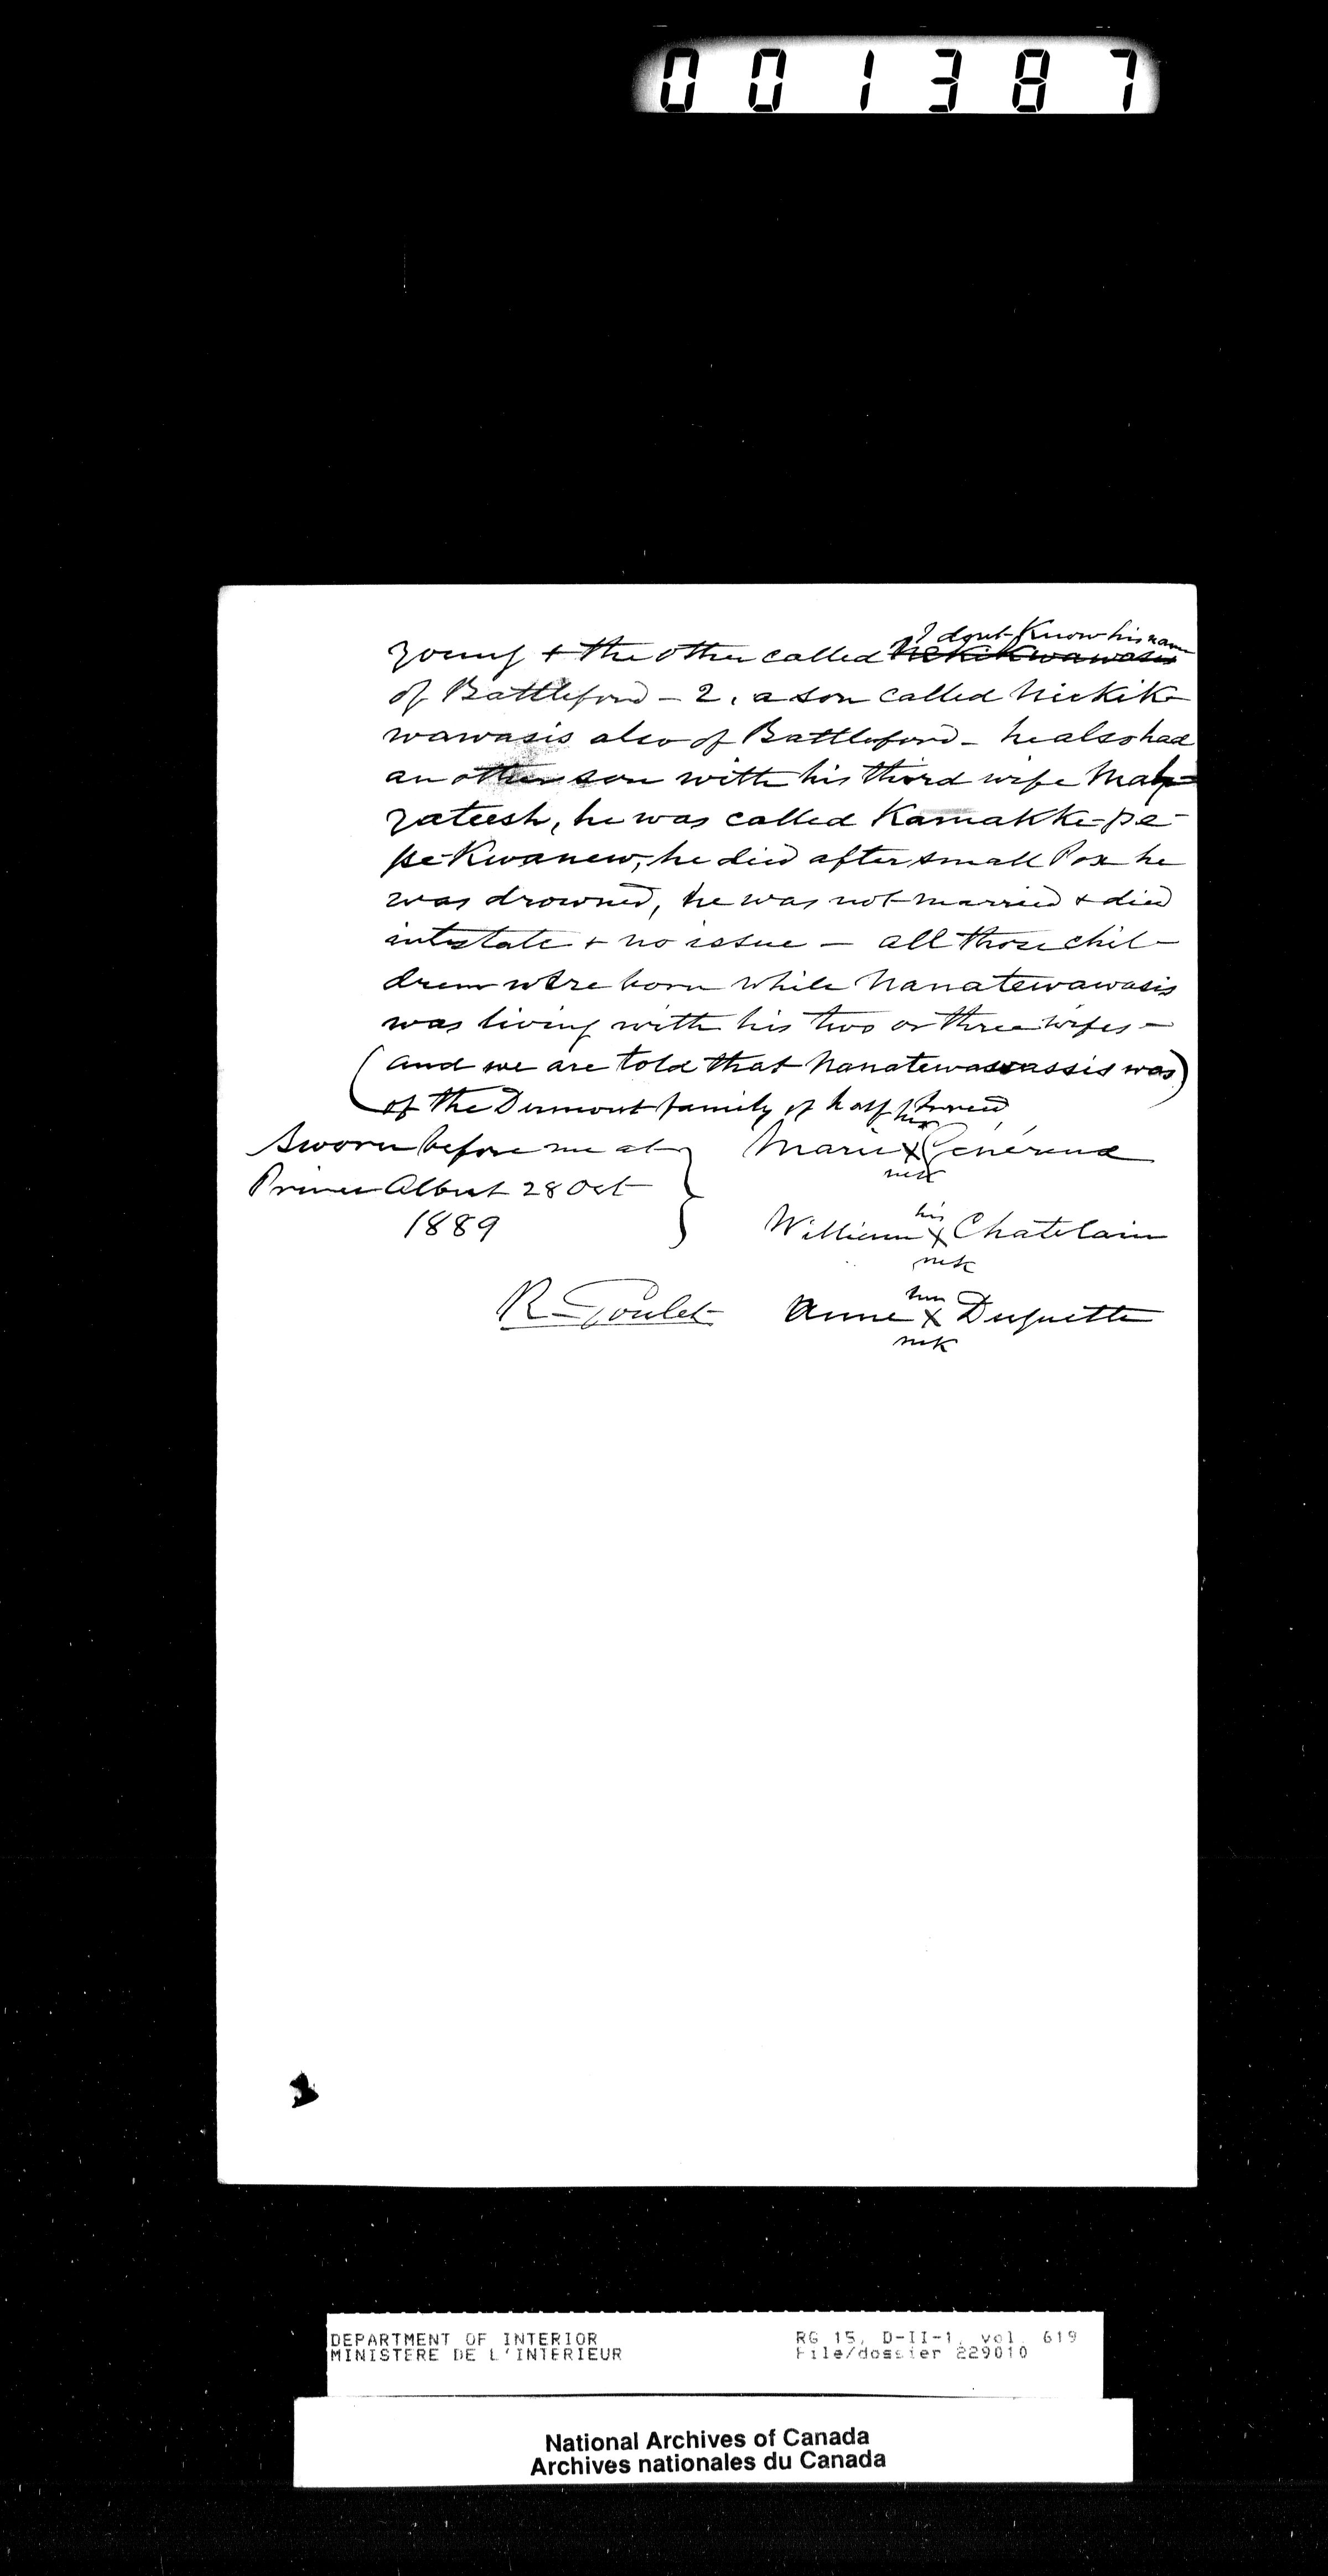 001387
I dont Know his name
young + the other called Nekikwawasis
of Battleford – 2. a son called Nickik-
wawasis also of Battleford – he also had
an other son with his third wife Mah-
yateesh, he was called Kamakke-pe-
pe-Kwanew, he died after small Pox he
was drowned, he was not married + died
intestate + no issue – all those chil-
dren were born while Nanatewawasis
was living with his two or three wifes –
(and we are told that Nanatewawassis was)
of the Dumont family of half breed
Sworn before me at } Marie her X mk Généreux
Prince Albert 28 Oct
1889
William his X mk Chatelain
R Goulet
Anne her X mk Duquette
DEPARTMENT OF INTERIOR
MINISTERE DE L'INTERIEUR
RG 15, D-II-1, vol. 619
File/dossier 229010
National Archives of Canada
Archives nationales du Canada